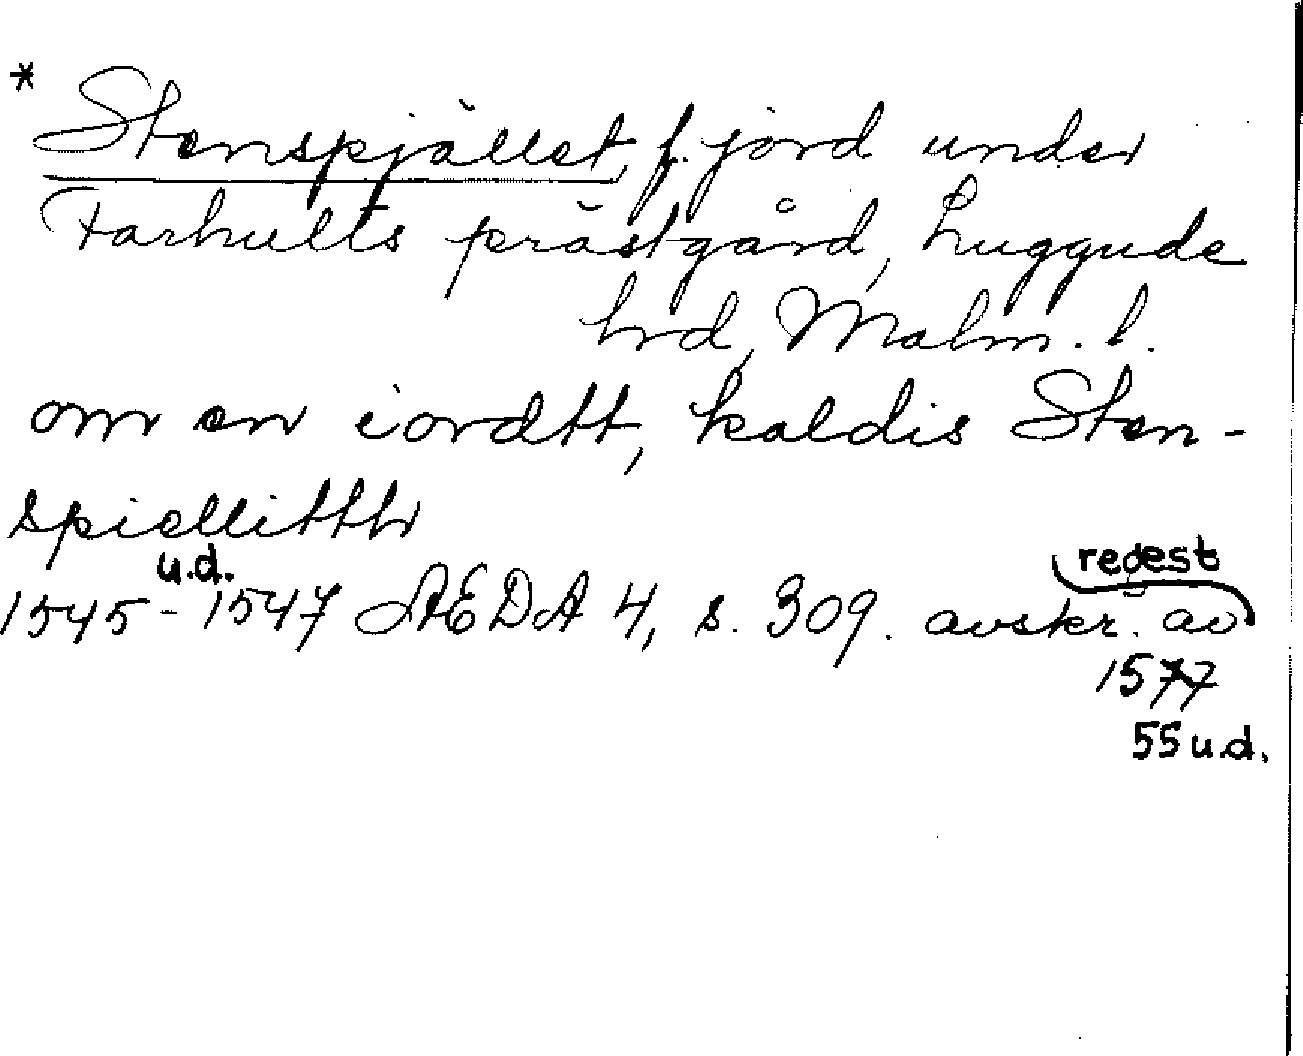 * Stenspjället, f. jord under
Farhults prästgård, Luggude
hrd, Malm. l.
om en iordtt, kaldis Sten-
spiellitthr
u.d. regest
1545 - 1547 ÆDA 4, s. 309. avskr. av
1577
55 u.d.